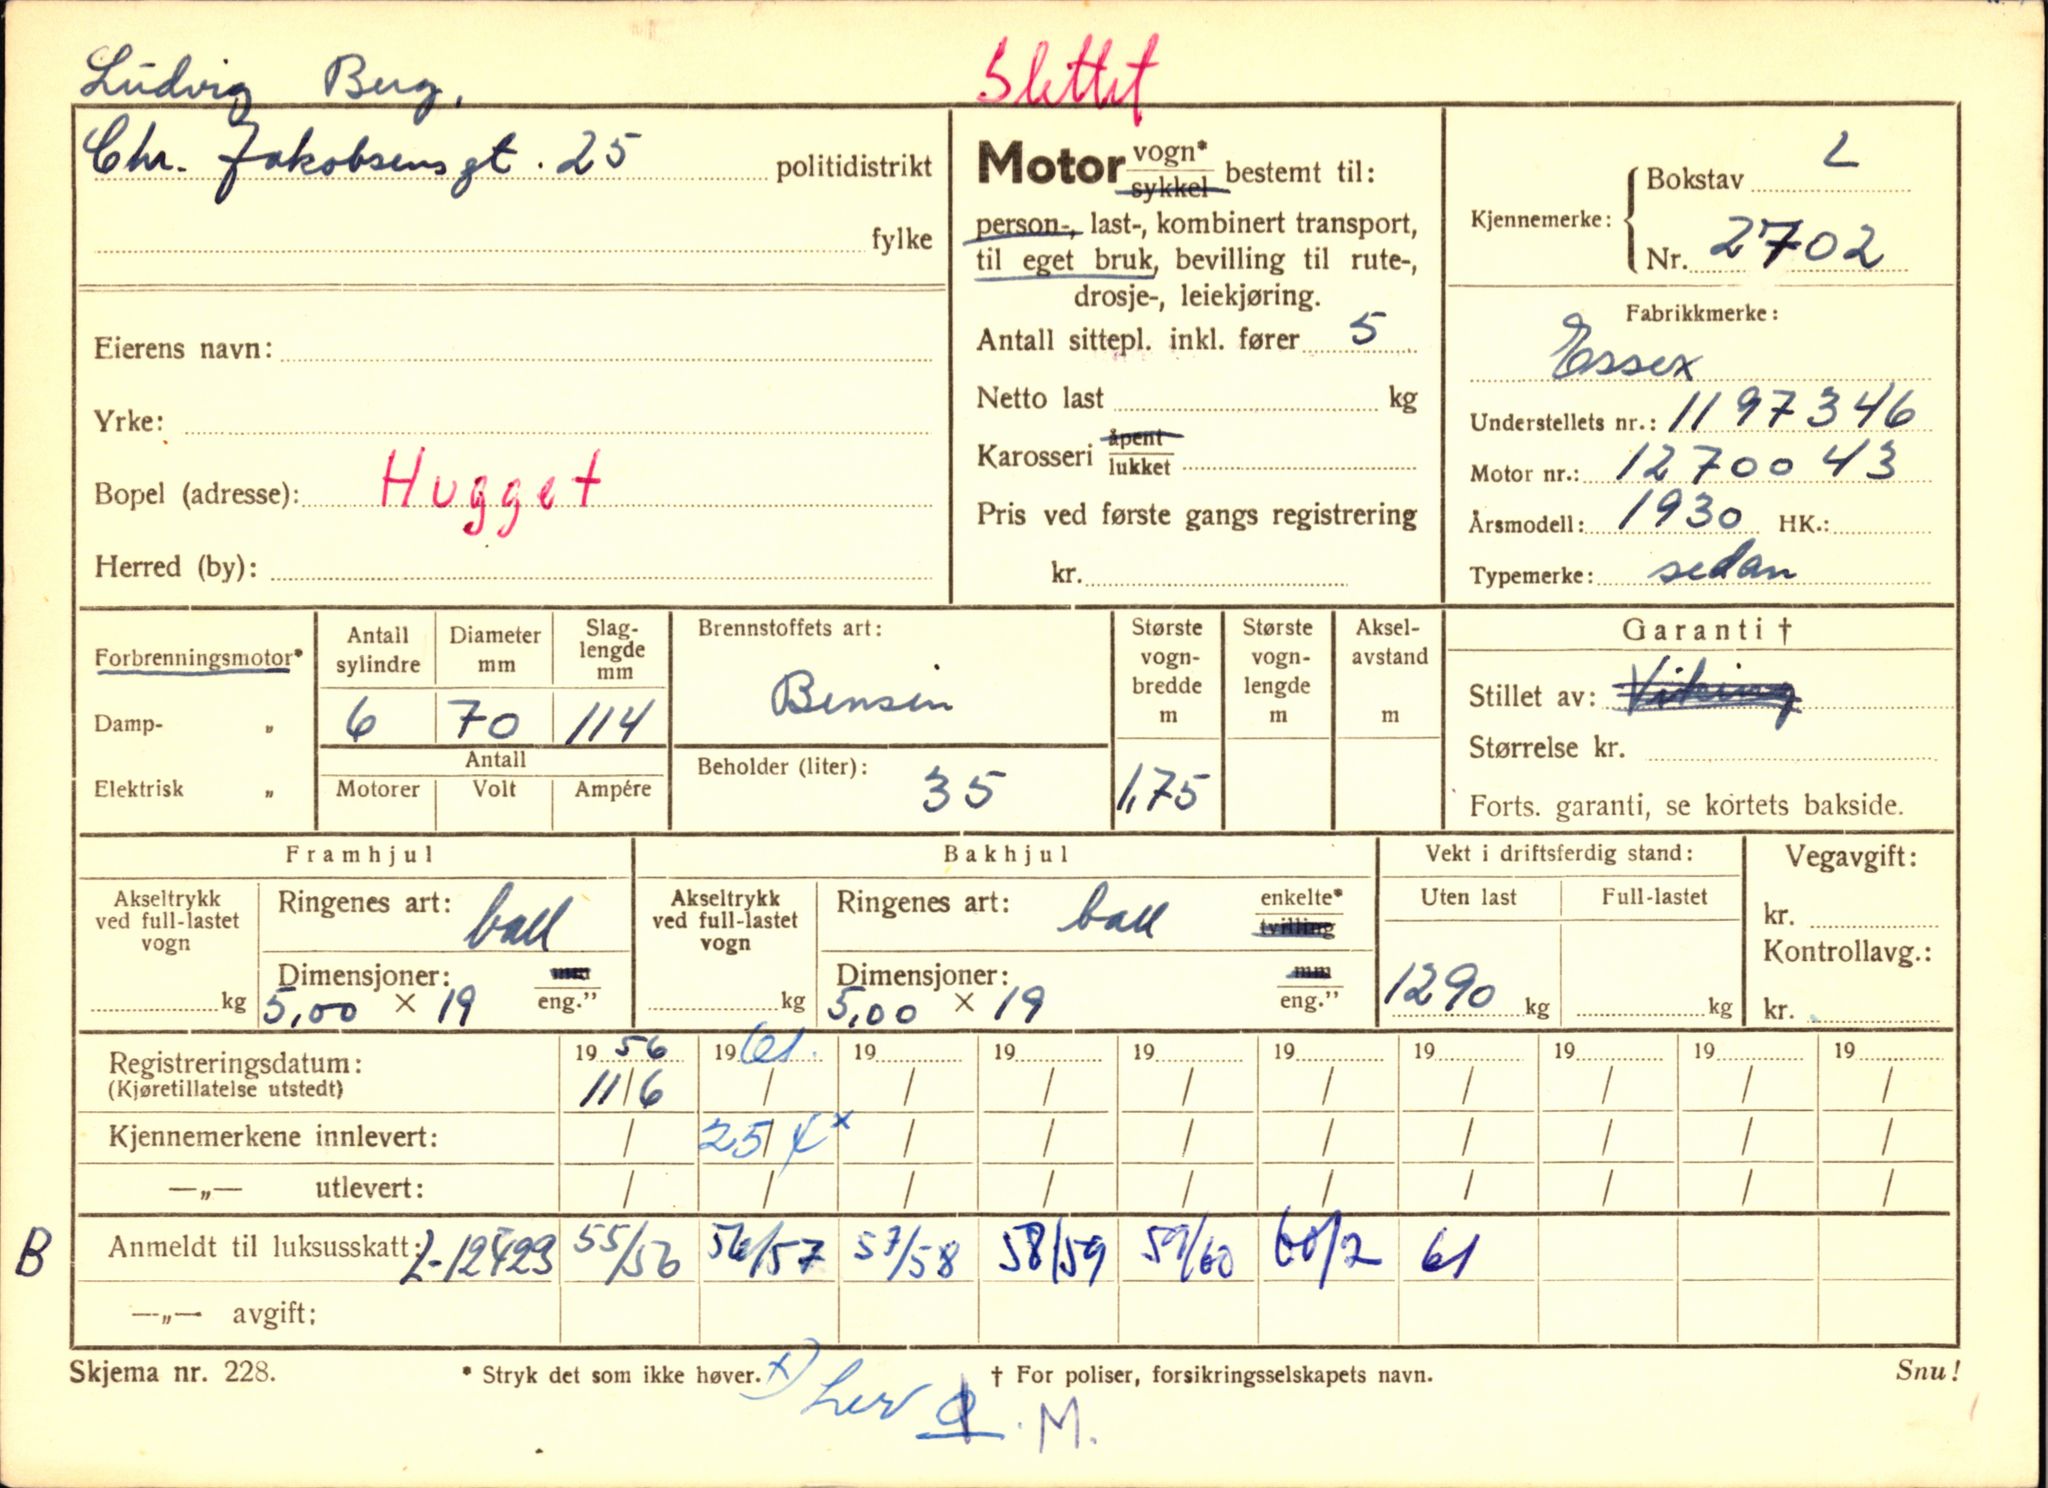 Ludvig Berg,
Slettet
Chr. Jakobsensgt. 25 politidistrikt
fylke
Eierens navn:
Yrke:
Bopel (adresse): Hugget
Herred (by):
Motor vogn* sykkel bestemt til:
person-, last-, kombinert transport,
til eget bruk, bevilling til rute-,
drosje-, leiekjøring.
Antall sittepl. inkl. fører 5
Netto last kg
Karosseri åpent lukket
Pris ved første gangs registrering
kr.
Kjennemerke: Bokstav L
Nr. 2702
Fabrikkmerke:
Essex
Understellets nr.: 1197346
Motor nr.: 1270043
Årsmodell: 1930 HK.:
Typemerke: sedan
Forbrenningsmotor*
Damp- „
Elektrisk „
Antall sylindre
6
Diameter mm
70
Slag-lengde mm
114
Antall
Motorer Volt Ampére
Brennstoffets art:
Bensin
Beholder (liter):
35
Største vogn-bredde m
1,75
Største vogn-lengde m
Aksel-avstand m
Garanti †
Stillet av: Viking
Størrelse kr.
Forts. garanti, se kortets bakside.
Framhjul
Akseltrykk ved full-lastet vogn
kg
Ringenes art: ball
Dimensjoner: mm
5,00 × 19 eng.”
Bakhjul
Akseltrykk ved full-lastet vogn
kg
Ringenes art: ball enkelte* tvilling
Dimensjoner: mm
5,00 × 19 eng.”
Vekt i driftsferdig stand:
Uten last Full-lastet
1290 kg kg
Vegavgift:
kr.
Kontrollavg.:
kr.
Registreringsdatum: 1956 1961. 19 19 19 19 19 19 19 19
(Kjøretillatelse utstedt) 11/6 / / / / / / / / /
Kjennemerkene innlevert: / 25/4 x / / / / / / / /
—„— utlevert: / / / / / / / / / /
B Anmeldt til luksusskatt: L-12423 55/56 56/57 57/58 58/59 59/60 60/2 61
—„— avgift:
Skjema nr. 228. * Stryk det som ikke høver. † For poliser, forsikringsselskapets navn. Snu!
x) Lev . M.